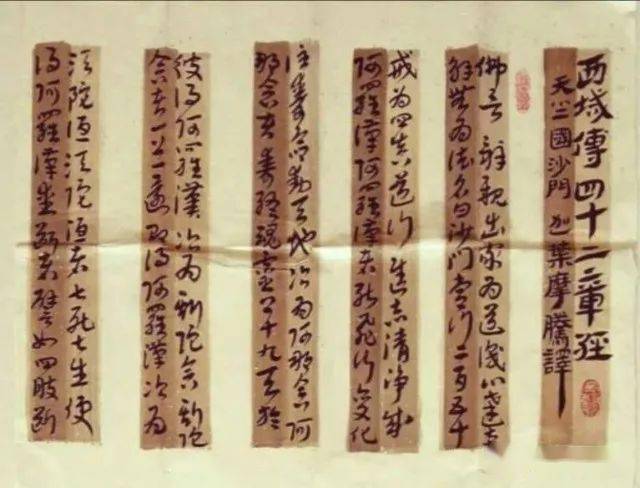 西域傳四十二章經
天竺國沙門迦葉摩騰譯
佛言辭親出家為道識心達本
解無為法名曰沙門常行二百五十
戒為四真道行進志清淨成
阿羅漢阿羅漢者能飛行變化
住壽命動天地次為阿那含阿
那含者壽終魂靈上十九天於
彼得阿羅漢次為斯陀含斯陀
含者一上一還即得阿羅漢次為
須陀洹須陀洹者七死七生便
得阿羅漢愛斷者譬如四肢斷